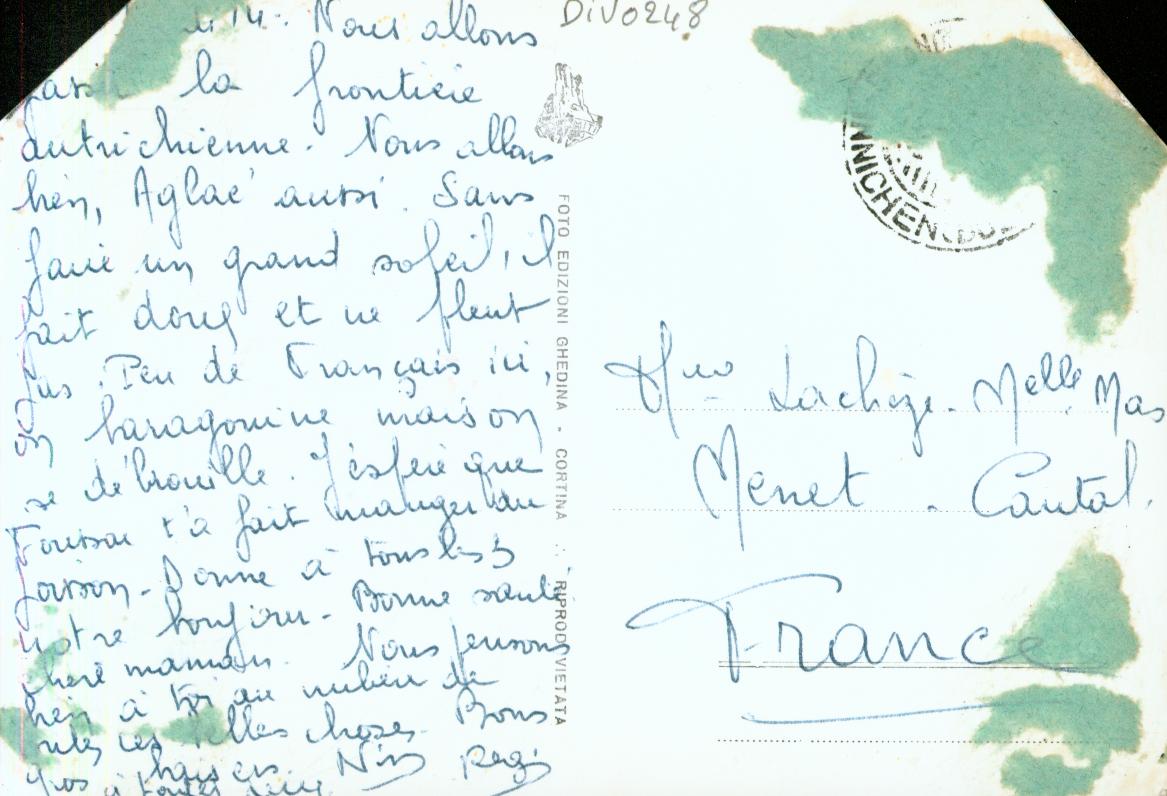 DiV0248
le 14. Nous allons
la frontière
autrichienne. Nous allons
bien, Aglaé aussi. Sans
faire un grand soleil, il
fait doux et ne pleut
pas. Peu de Français ici,
on baragouine mais on
se débrouille. J'espère que
t'a fait manger du
poisson - Donne à tous les 3
notre bonjour - Bonne santé
chère maman. Nous pensons
bien à toi au milieu de
ces belles choses. Bons
gros baisers
à toutes deux
FOTO EDIZIONI GHEDINA - CORTINA
RIPROD. VIETATA
NNICHEN
Lachèze. Melle Mas
Menet. Cantal.
France